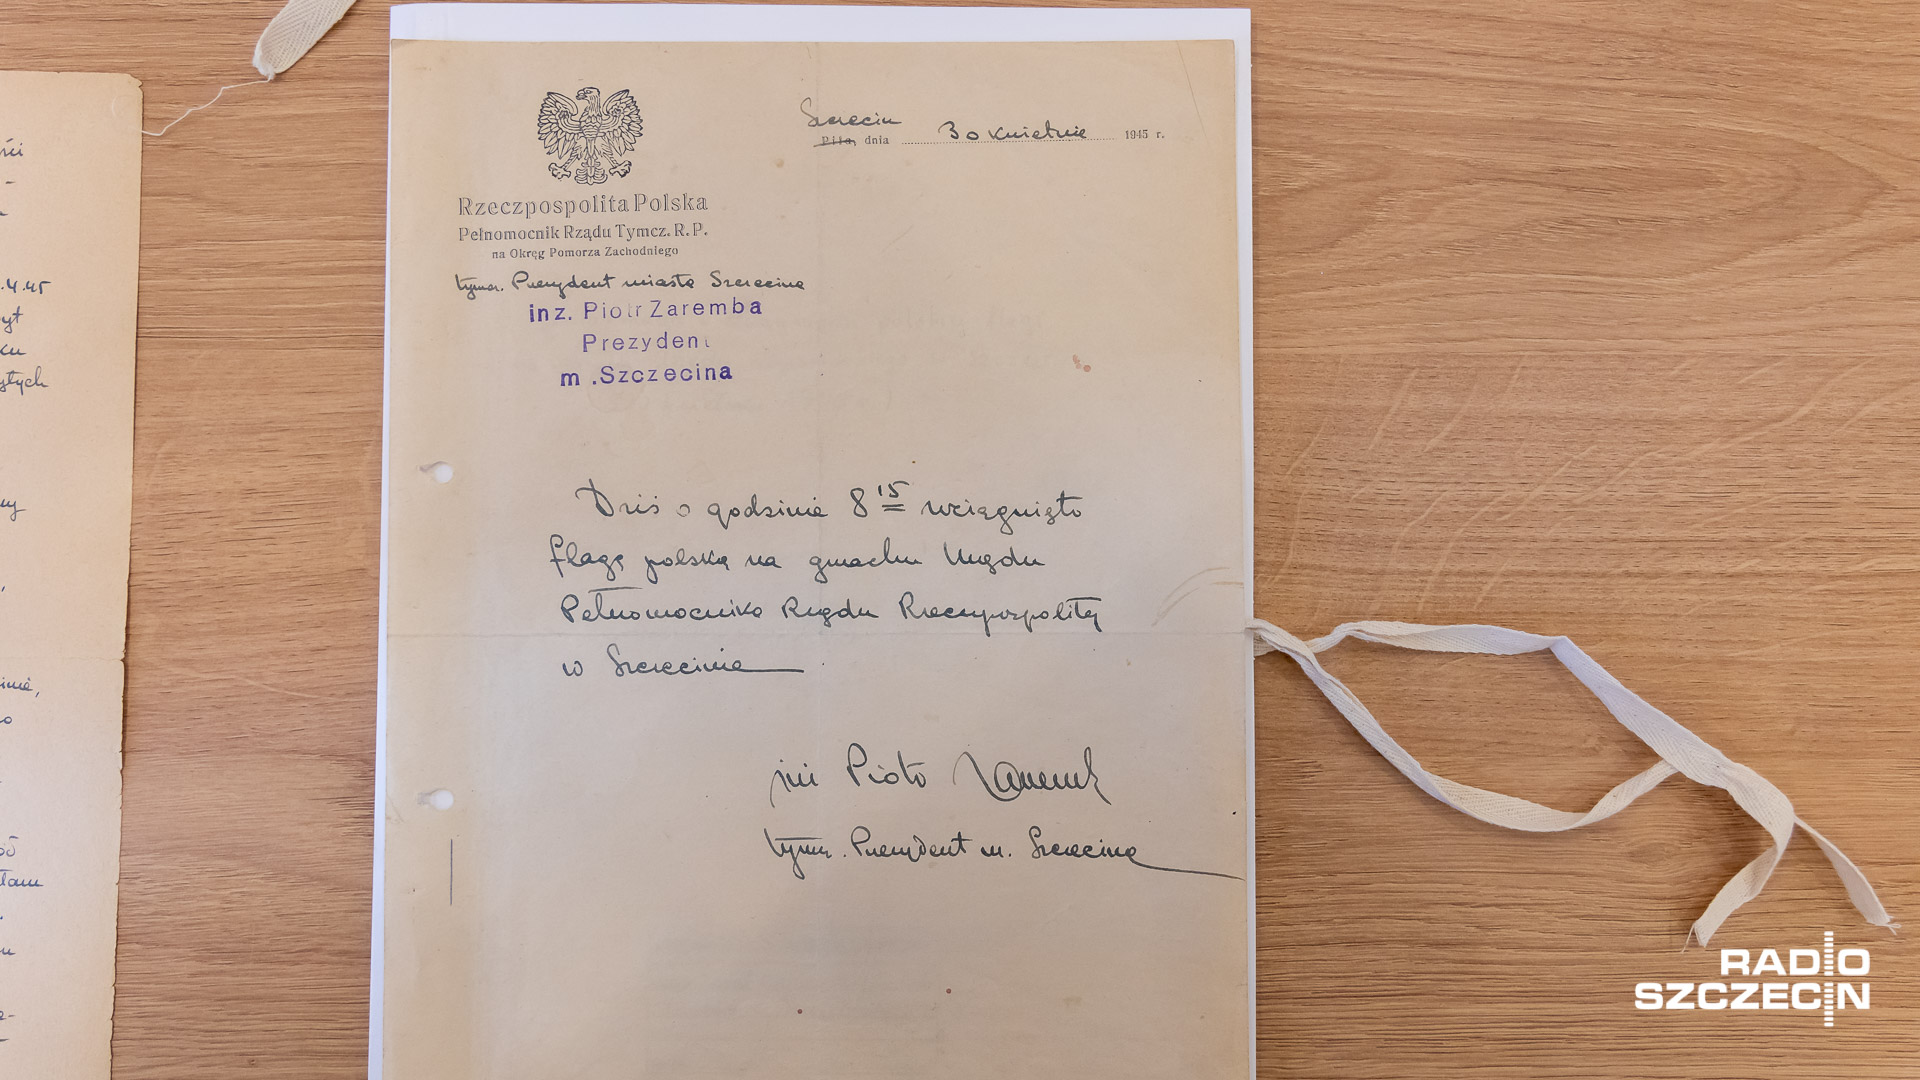 Szczecin
Piła, dnia 30 kwietnia 1945 r.
Rzeczpospolita Polska
Pełnomocnik Rządu Tymcz. R. P.
na Okręg Pomorza Zachodniego
tymcz. Prezydent miasta Szczecina
inz. Piotr Zaremba
Prezydent
m .Szczecina
Dziś o godzinie 8 15 wciągnięto
flagę polską na gmachu Urzędu
Pełnomocnika Rządu Rzeczypospolitej
w Szczecinie
inż Piotr Zaremba
tymcz. Prezydent m. Szczecina
.4.45
RADIO
SZCZECIN